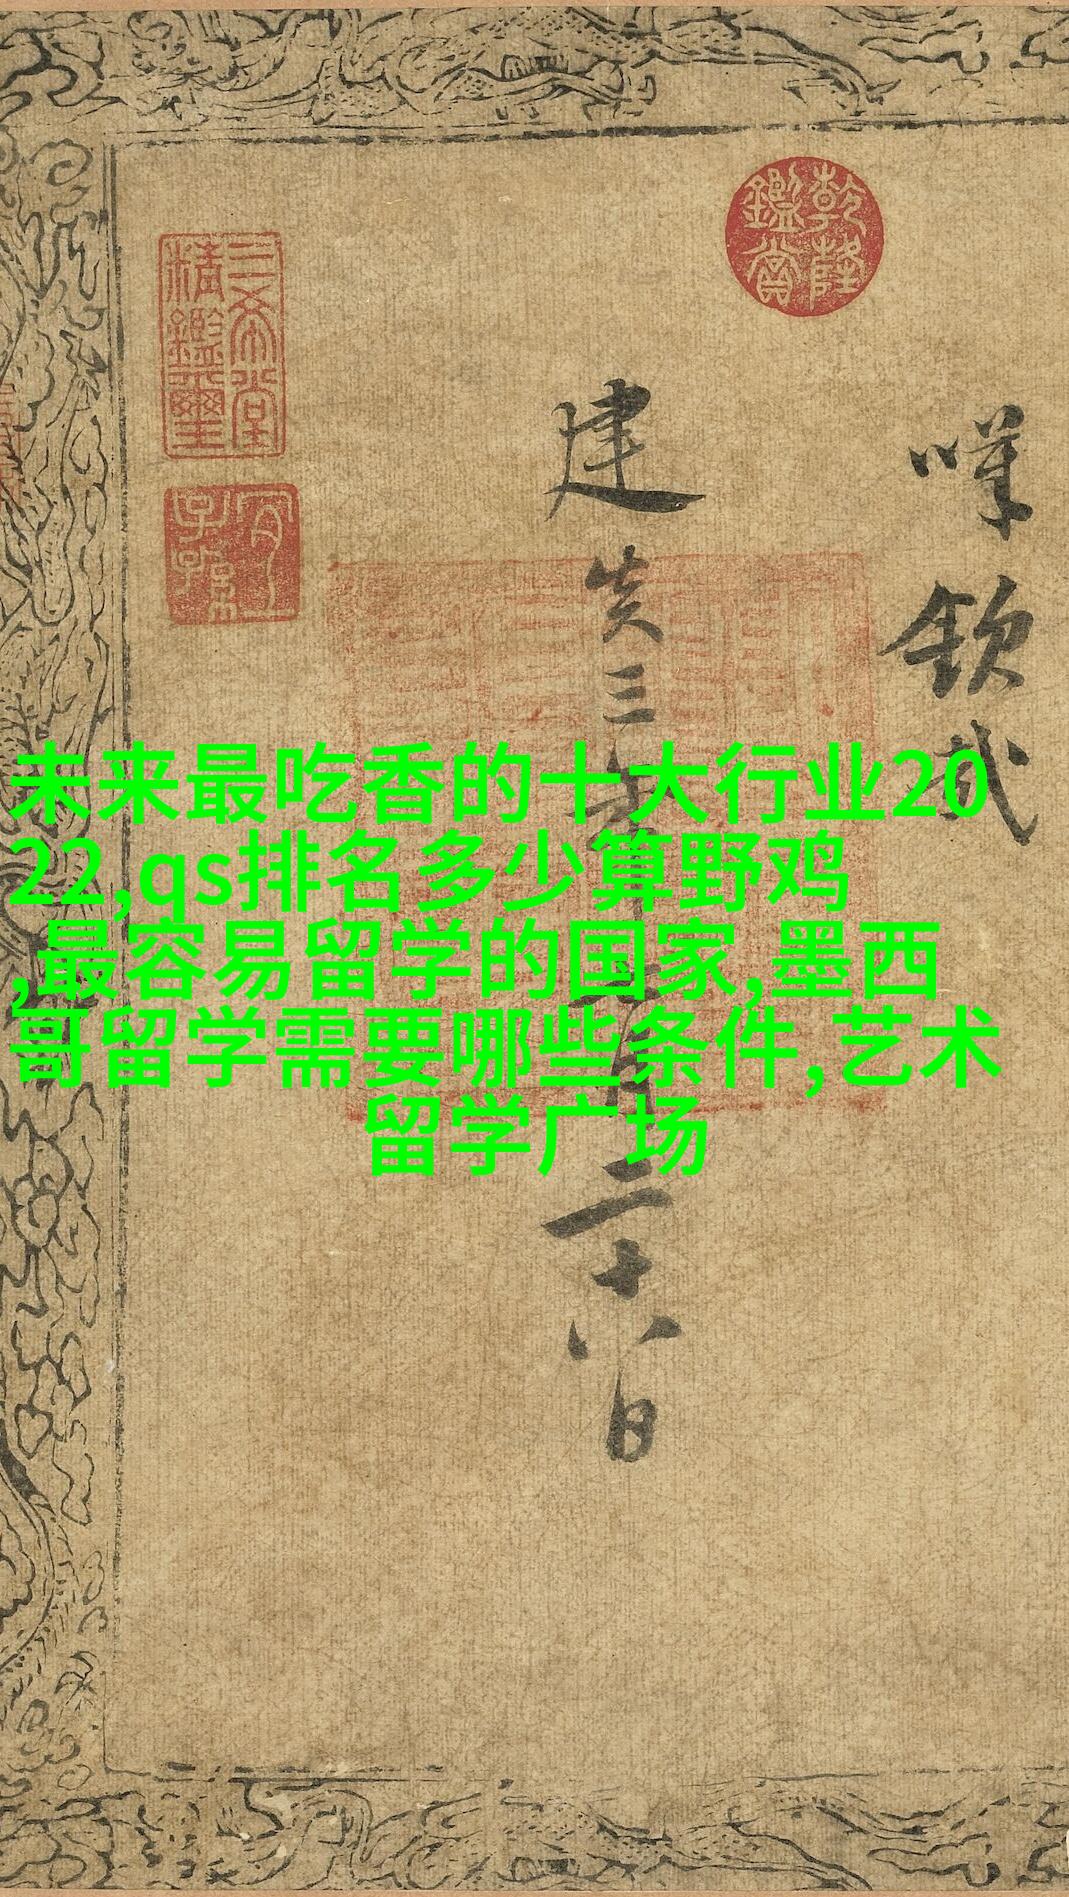 未来最吃香的十大行业20
22,qs排名多少算野鸡
,最容易留学的国家,墨西
哥留学需要哪些条件,艺术
留学广场
乾隆
鑑賞
三希堂
精鑑璽
宜
子孫
建炎三年
二十八日